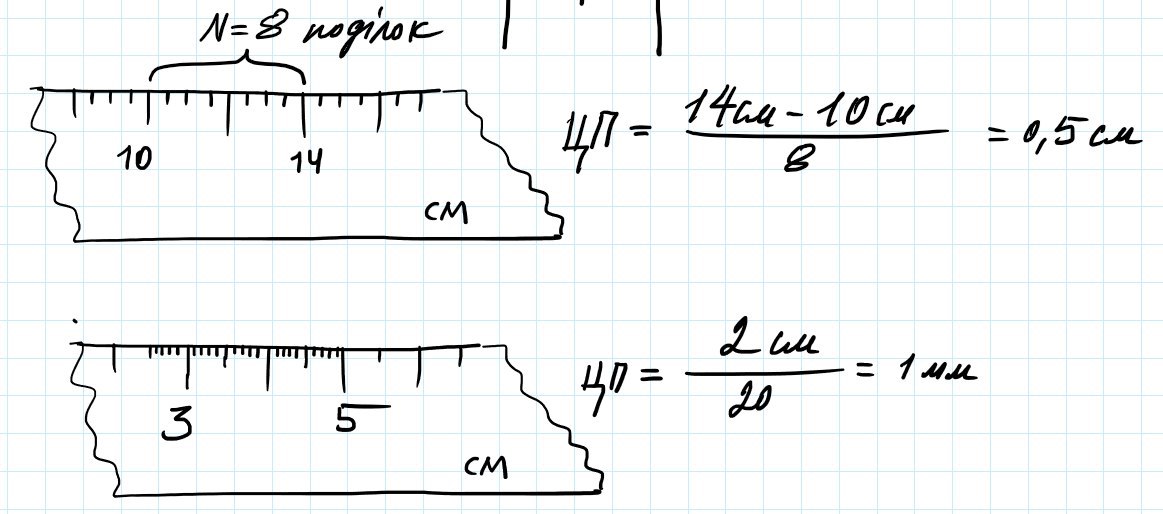 N = 8 поділок
10 14
см
ЦП = 14см - 10см / 8 = 0,5 см
3 5
см
ЦП = 2 см / 20 = 1 мм